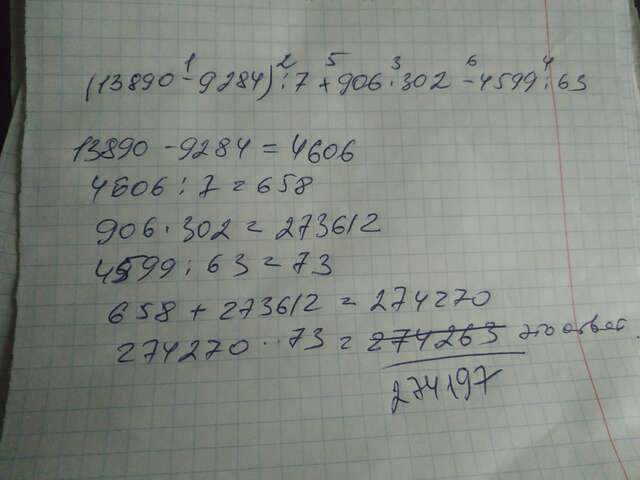 1 2 5 3 6 4
(13890 - 9284) : 7 + 906 · 302 - 4599 : 63
13890 - 9284 = 4606
4606 : 7 = 658
906 · 302 = 273612
4599 : 63 = 73
658 + 273612 = 274270
274270 - 73 = 274263 это ответ.
274197